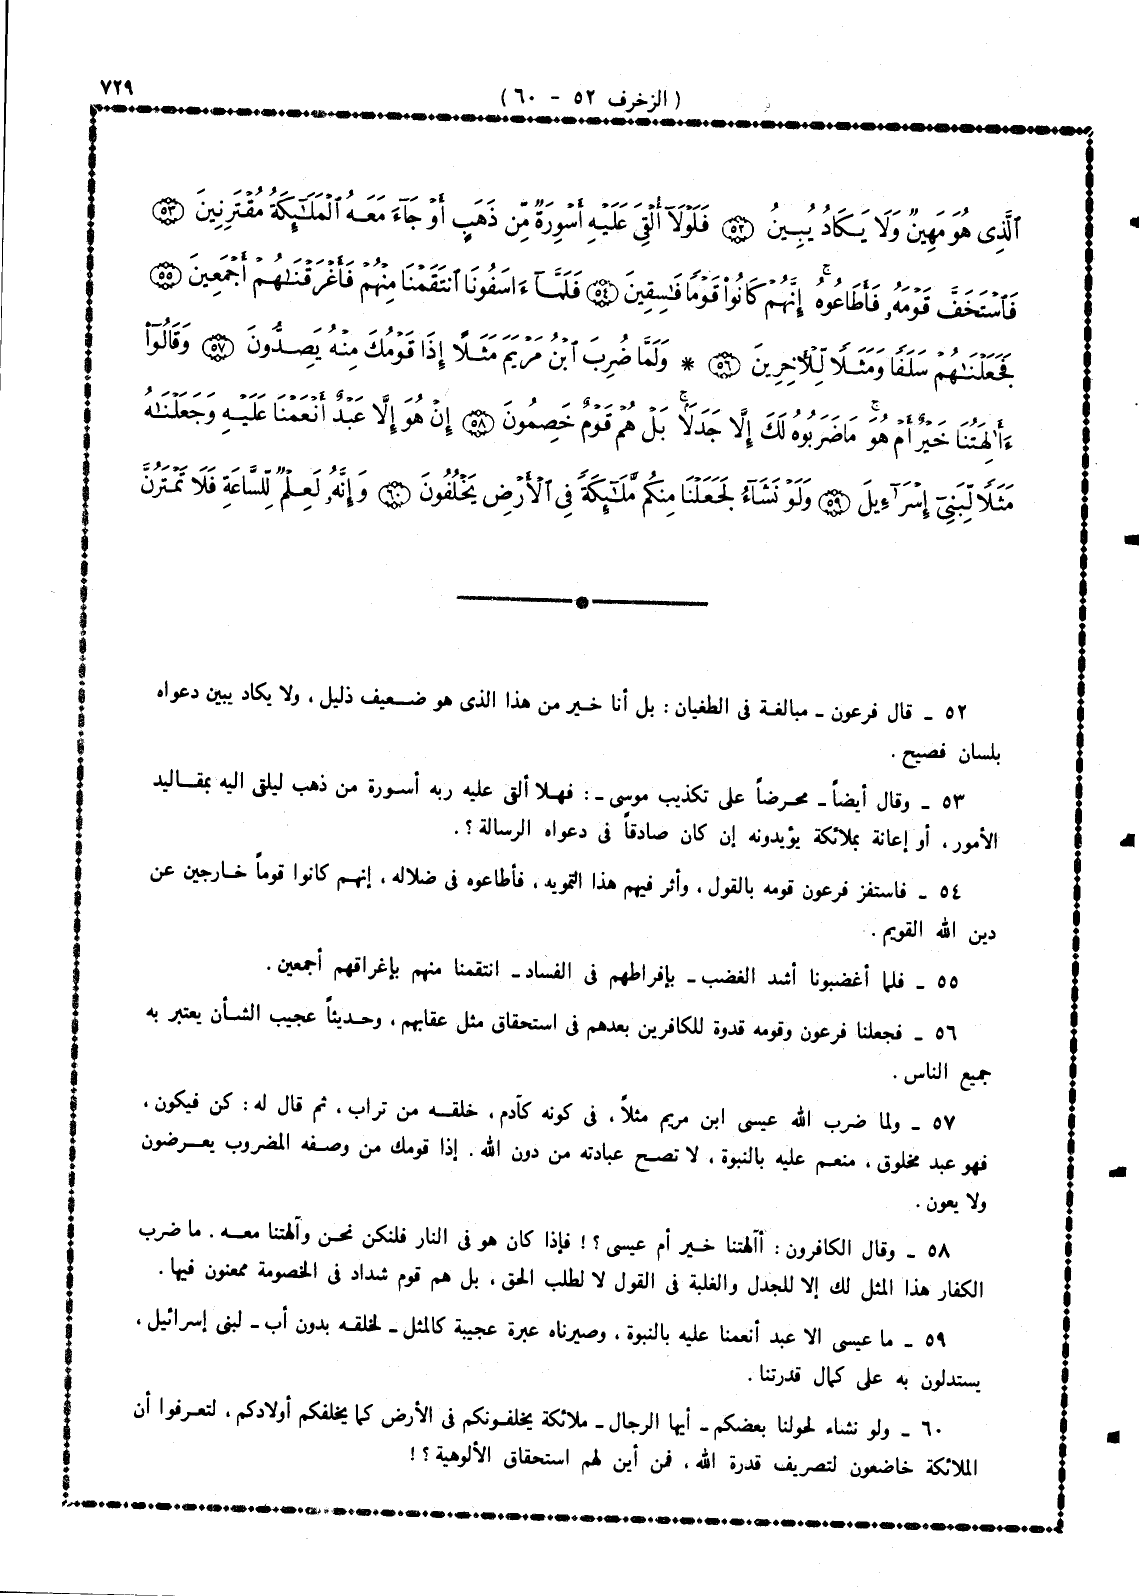 ٧٢٩
( الزخرف ٥٢ - ٦٠ )
ٱلَّذِى هُوَ مَهِينٌ وَلَا يَكَادُ يُبِينُ ٥٢ فَلَوْلَآ أُلْقِىَ عَلَيْهِ أَسْوِرَةٌ مِّن ذَهَبٍ أَوْ جَآءَ مَعَهُ ٱلْمَلَـٰٓئِكَةُ مُقْتَرِنِينَ ٥٣
فَٱسْتَخَفَّ قَوْمَهُۥ فَأَطَاعُوهُ ۚ إِنَّهُمْ كَانُوا۟ قَوْمًا فَـٰسِقِينَ ٥٤ فَلَمَّآ ءَاسَفُونَا ٱنتَقَمْنَا مِنْهُمْ فَأَغْرَقْنَـٰهُمْ أَجْمَعِينَ ٥٥
فَجَعَلْنَـٰهُمْ سَلَفًا وَمَثَلًا لِّلْـَٔاخِرِينَ ٥٦ * وَلَمَّا ضُرِبَ ٱبْنُ مَرْيَمَ مَثَلًا إِذَا قَوْمُكَ مِنْهُ يَصِدُّونَ ٥٧ وَقَالُوٓا۟
ءَأَـٰلِهَتُنَا خَيْرٌ أَمْ هُوَ ۚ مَا ضَرَبُوهُ لَكَ إِلَّا جَدَلًۢا ۚ بَلْ هُمْ قَوْمٌ خَصِمُونَ ٥٨ إِنْ هُوَ إِلَّا عَبْدٌ أَنْعَمْنَا عَلَيْهِ وَجَعَلْنَـٰهُ
مَثَلًا لِّبَنِىٓ إِسْرَٰٓءِيلَ ٥٩ وَلَوْ نَشَآءُ لَجَعَلْنَا مِنكُم مَّلَـٰٓئِكَةً فِى ٱلْأَرْضِ يَخْلُفُونَ ٦٠ وَإِنَّهُۥ لَعِلْمٌ لِّلسَّاعَةِ فَلَا تَمْتَرُنَّ
٥٢ ـ قال فرعون ـ مبالغة فى الطغيان : بل أنا خير من هذا الذى هو ضعيف ذليل ، ولا يكاد يبين دعواه
بلسان فصيح .
٥٣ ـ وقال أيضاً ـ محرضاً على تكذيب موسى ـ : فهلا ألقى عليه ربه أسورة من ذهب ليلقى اليه بمقاليد
الأمور ، أو إعانة بملائكة يؤيدونه إن كان صادقاً فى دعواه الرسالة ؟ .
٥٤ ـ فاستفز فرعون قومه بالقول ، وأثر فيهم هذا التمويه ، فأطاعوه فى ضلاله ، إنهم كانوا قوماً خارجين عن
دين الله القويم .
٥٥ ـ فلما أغضبونا أشد الغضب ـ بإفراطهم فى الفساد ـ انتقمنا منهم بإغراقهم أجمعين .
٥٦ ـ فجعلنا فرعون وقومه قدوة للكافرين بعدهم فى استحقاق مثل عقابهم ، وحديثاً عجيب الشأن يعتبر به
جميع الناس .
٥٧ ـ ولما ضرب الله عيسى ابن مريم مثلاً ، فى كونه كآدم ، خلقه من تراب ، ثم قال له : كن فيكون ،
فهو عبد مخلوق ، منعم عليه بالنبوة ، لا تصح عبادته من دون الله . إذا قومك من وصفه المضروب يعرضون
ولا يعون .
٥٨ ـ وقال الكافرون : أآلهتنا خير أم عيسى ؟ ! فإذا كان هو فى النار فلنكن نحن وآلهتنا معه . ما ضرب
الكفار هذا المثل لك إلا للجدل والغلبة فى القول لا لطلب الحق ، بل هم قوم شداد فى الخصومة ممعنون فيها .
٥٩ ـ ما عيسى الا عبد أنعمنا عليه بالنبوة ، وصيرناه عبرة عجيبة كالمثل ـ لخلقه بدون أب ـ لبنى إسرائيل ،
يستدلون به على كمال قدرتنا .
٦٠ ـ ولو نشاء لحولنا بعضكم ـ أيها الرجال ـ ملائكة يخلفونكم فى الأرض كما يخلفكم أولادكم ، لتعرفوا أن
الملائكة خاضعون لتصريف قدرة الله ، فمن أين لهم استحقاق الألوهية ؟ !